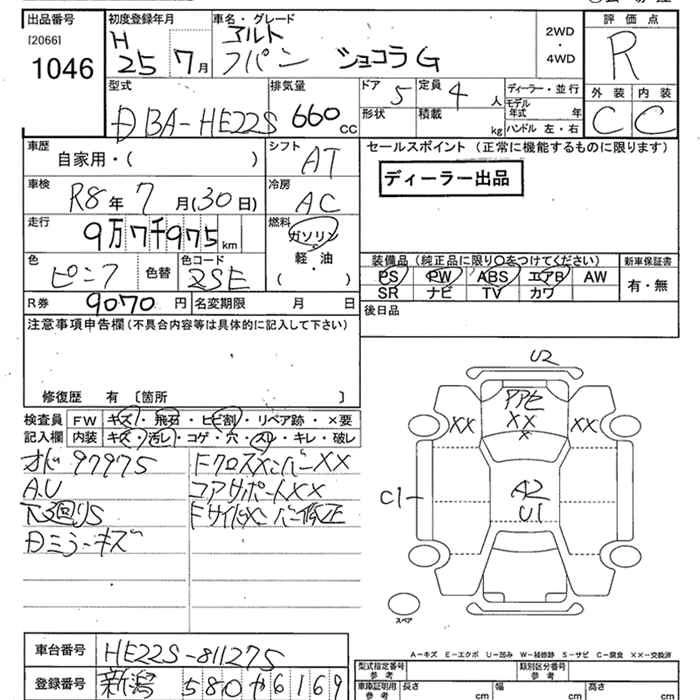 出品番号 初度登録年月 車名・グレード 評価点
[2066] H アルト 2WD
1046 25 7月 ラパン ショコラG ・ R
4WD
型式 排気量 ドア 5 定員 4人 ディーラー・並行 外装 内装
DBA-HE22S 660cc 形状 積載 kg モデル年式 年 C C
ハンドル 左・右
車歴 シフト セールスポイント (正常に機能するものに限ります)
自家用・( ) AT ディーラー出品
車検 冷房
R8年 7月(30日) AC
走行 燃料
9万7千975km ガソリン
軽・油
色 色コード ( ) 装備品 (純正品に限り○をつけてください) 新車保証書
ピンク 色替 ZSE PS PW ABS エアB AW 有・無
SR ナビ TV カワ
R券 9070円 名変期限 月 日 後日品
注意事項申告欄 (不具合内容等は具体的に記入して下さい)
修復歴 有 〔箇所 〕
検査員 FW キズ・飛石・ヒビ割・リペア跡・×要
記入欄 内装 キズ・汚レ・コゲ・穴・スレ・キレ・破レ
オド 97975 FクロスメンバーXX
A.U コアサポートXX
下廻りS Fサイドメンバー修正
Dミラーキズ
U2
PPE
XX XX XX
X
C1
A2
U1
スペア
A－キズ E－エクボ U－凹み W－補修跡 S－サビ C－腐食 XX－交換済
車台番号 HE22S-811275
登録番号 新潟 580 か 6169
型式指定番号 参考 類別区分番号 参考
車庫証明用 参考 長さ cm 幅 cm 高さ cm